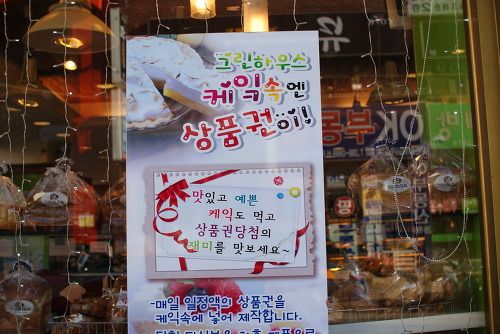 그린하우스
케익속엔
상품권이!
맛있고 예쁜
케익도 먹고
상품권당첨의
재미를 맛보세요~
-매일 일정액의 상품권을
케익속에 넣어 제작합니다.
OK